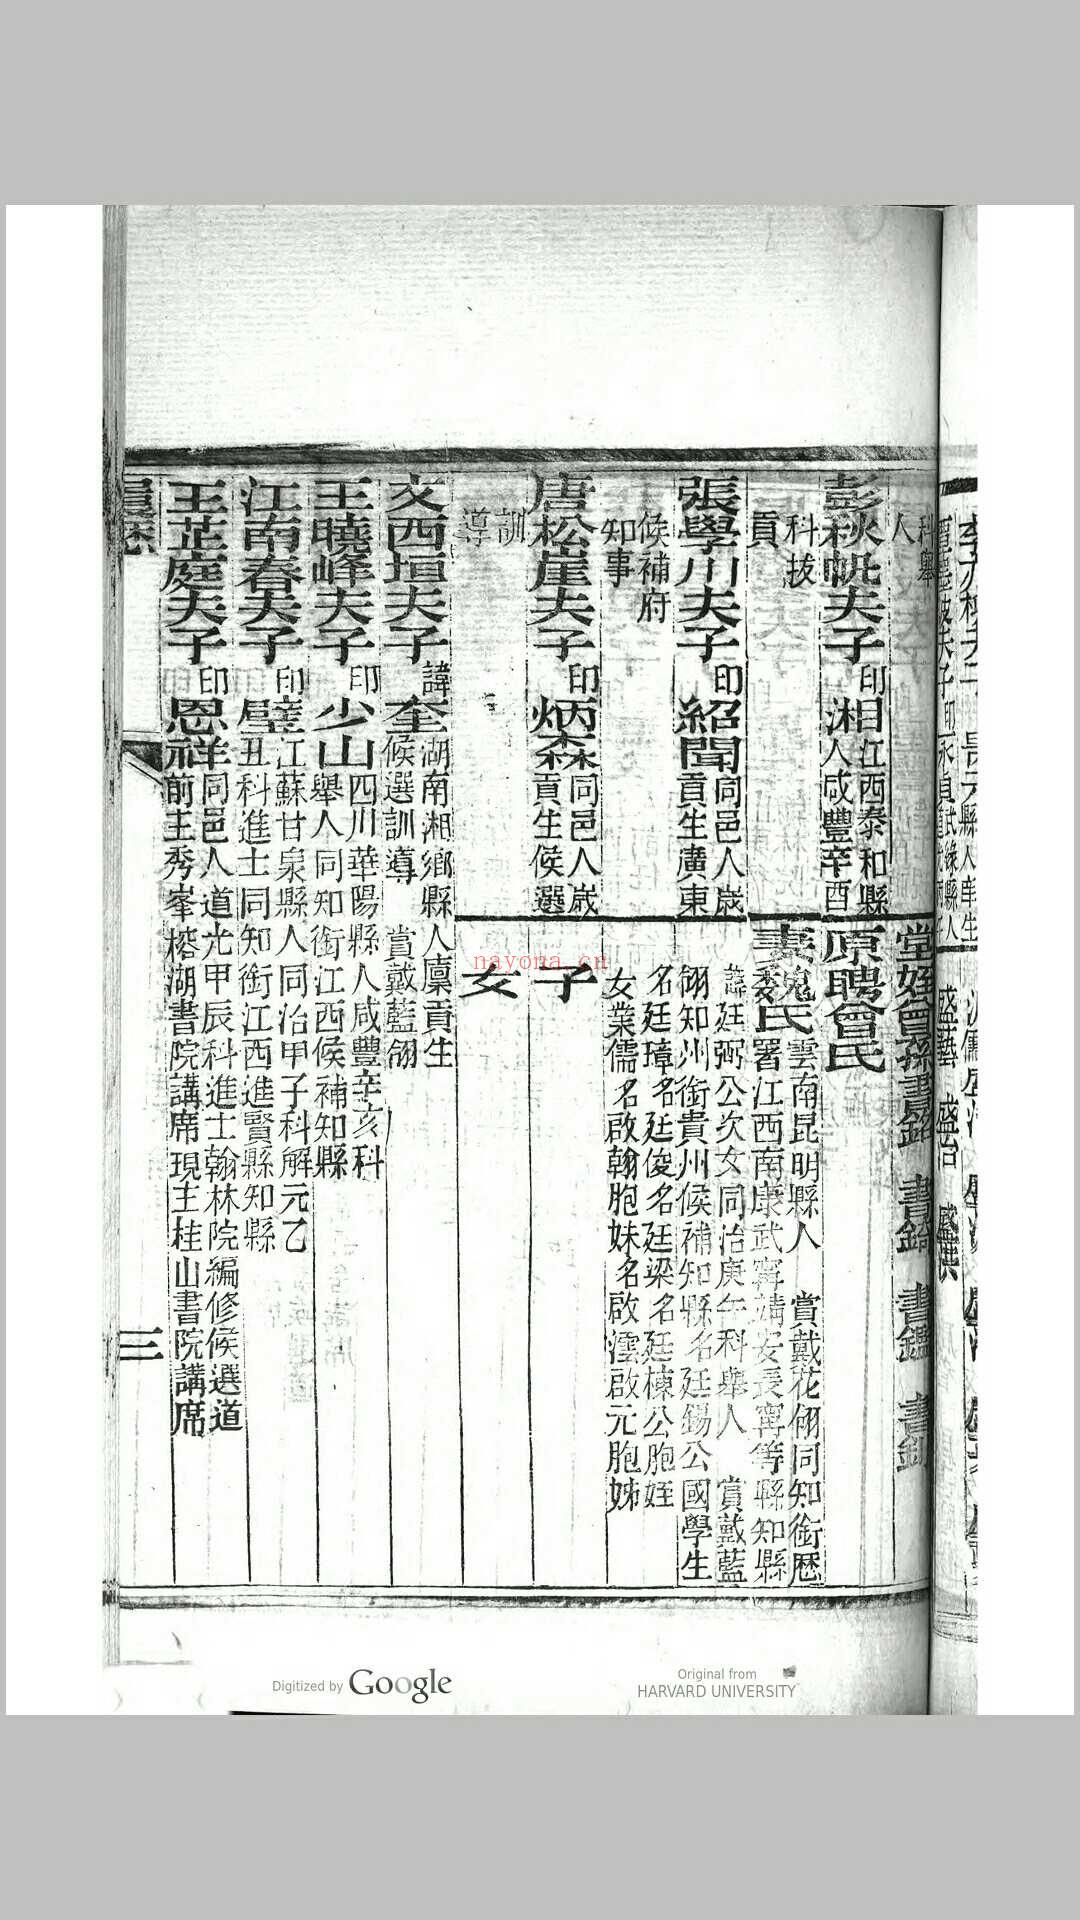 科舉
人
彭秋帆夫子 印 湘 江西泰和縣
人咸豐辛酉
科拔
貢
張學川夫子 印 紹聞 同邑人歲
貢生廣東
候補府
知事
唐松崖夫子 印 炳森 同邑人歲
貢生候選
訓
導
堂姪曾孫書銘 書錡 書鑑 書釗
原聘曾氏
妻魏氏 雲南昆明縣人 賞戴花翎同知銜歷
署江西南康武寧靖安長寧等縣知縣
諱廷弼公次女同治庚午科舉人 賞戴藍
翎知州銜貴州候補知縣名廷錫公國學生
名廷璋名廷俊名廷梁名廷棟公胞姪
女業儒名啟翰胞妹名啟澐啟元胞姊
子
女
文西垣夫子 諱 奎 湖南湘鄉縣人廩貢生
候選訓導 賞戴藍翎
王曉峰夫子 印 少山 四川華陽縣人咸豐辛亥科
舉人同知銜江西候補知縣
江南春夫子 印 璧 江蘇甘泉縣人同治甲子科解元乙
丑科進士同知銜江西進賢縣知縣
王芷庭夫子 印 恩祥 同邑人道光甲辰科進士翰林院編修候選道
前主秀峯榕湖書院講席現主桂山書院講席
履歷
三
nayona.cn
Digitized by Google
Original from
HARVARD UNIVERSITY